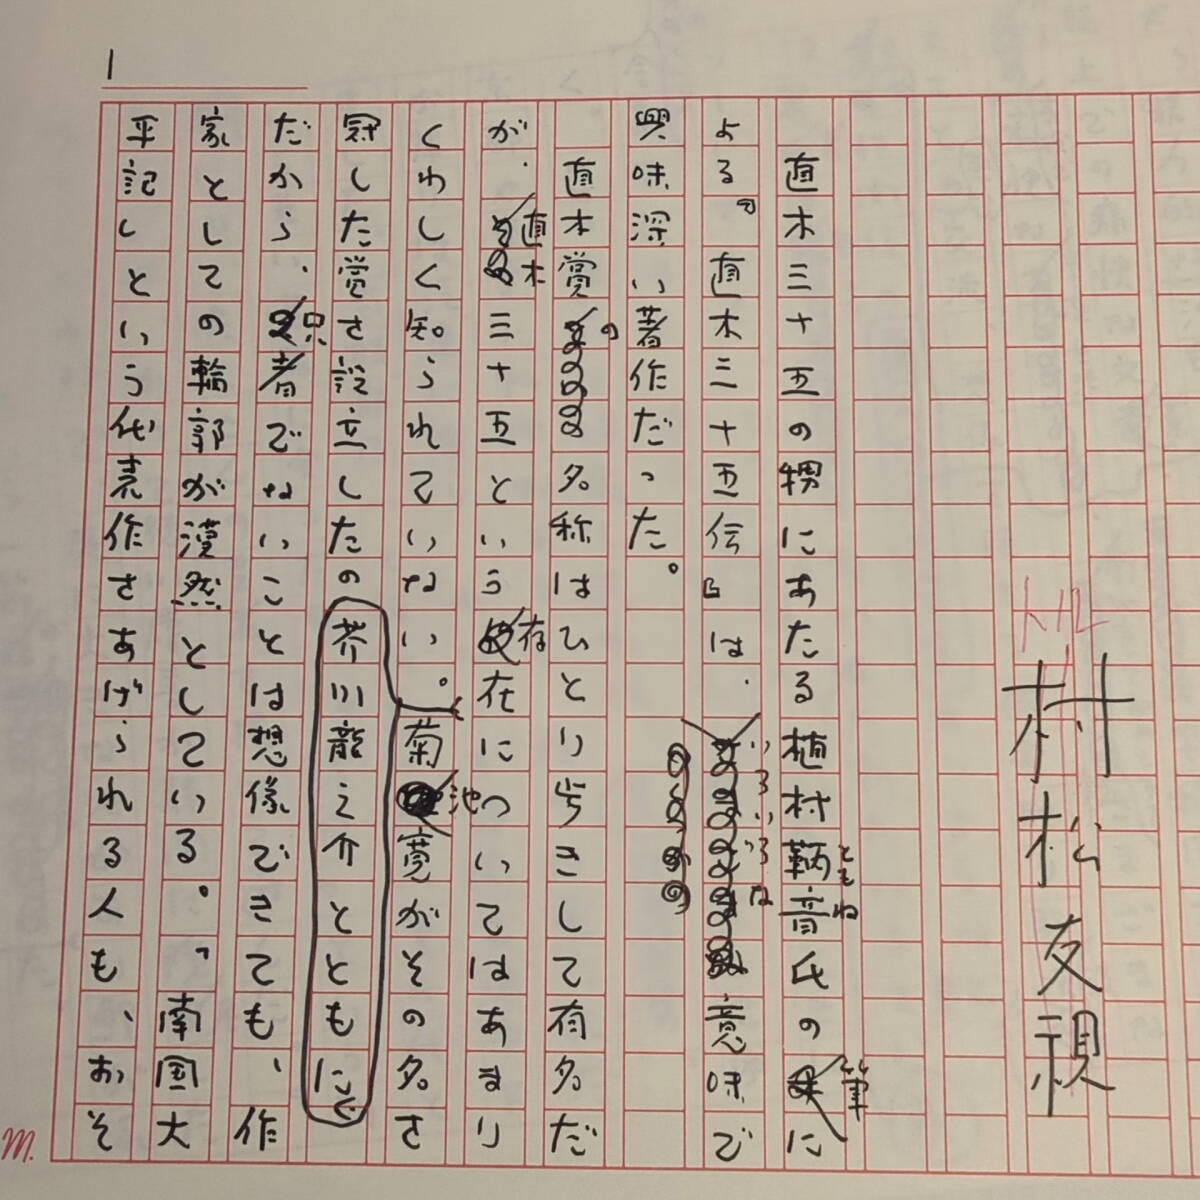 1
村松友視
直木三十五の甥にあたる植村鞆音氏の筆に
ともね
よる『直木三十五伝』は、いろいろな意味で
興味深い著作だった。
直木賞の名称はひとり歩きして有名だ
が、直木三十五という存在についてはあまり
くわしく知られていない。菊池寛がその名さ
冠した賞さ設立したの芥川龍之介とともに
だから、只者でないことは想像できても、作
家としての輪郭が漠然としている。「南国大
平記」という代表作さあげられる人も、おそ
m.